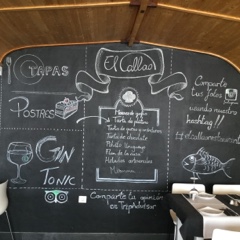 TAPAS
POSTRES
GIN
TONIC
El Callao
Tarta de queso y arándanos
Tarta de chocolate
Flan de la casa
Helados artesanales
Comparte
tus fotos
usando nuestro
hashtag!!
#elcallaorestaurante
Comparte tu opinión
en TripAdvisor